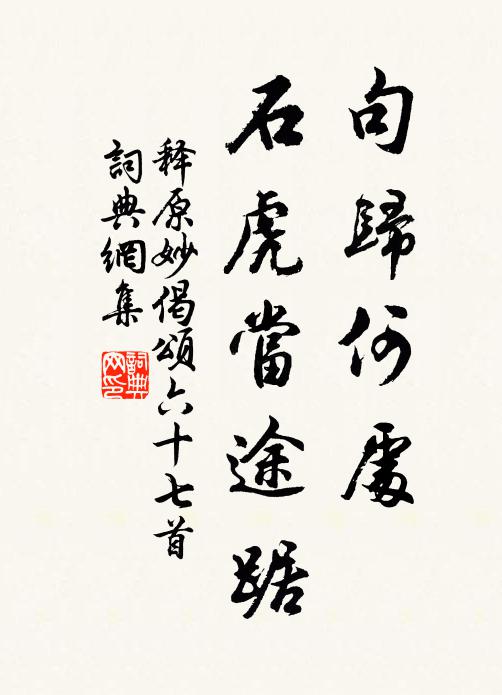 句歸何處
石虎當途踞
释原妙偈頌六十七首
詞典網集
詞典網印